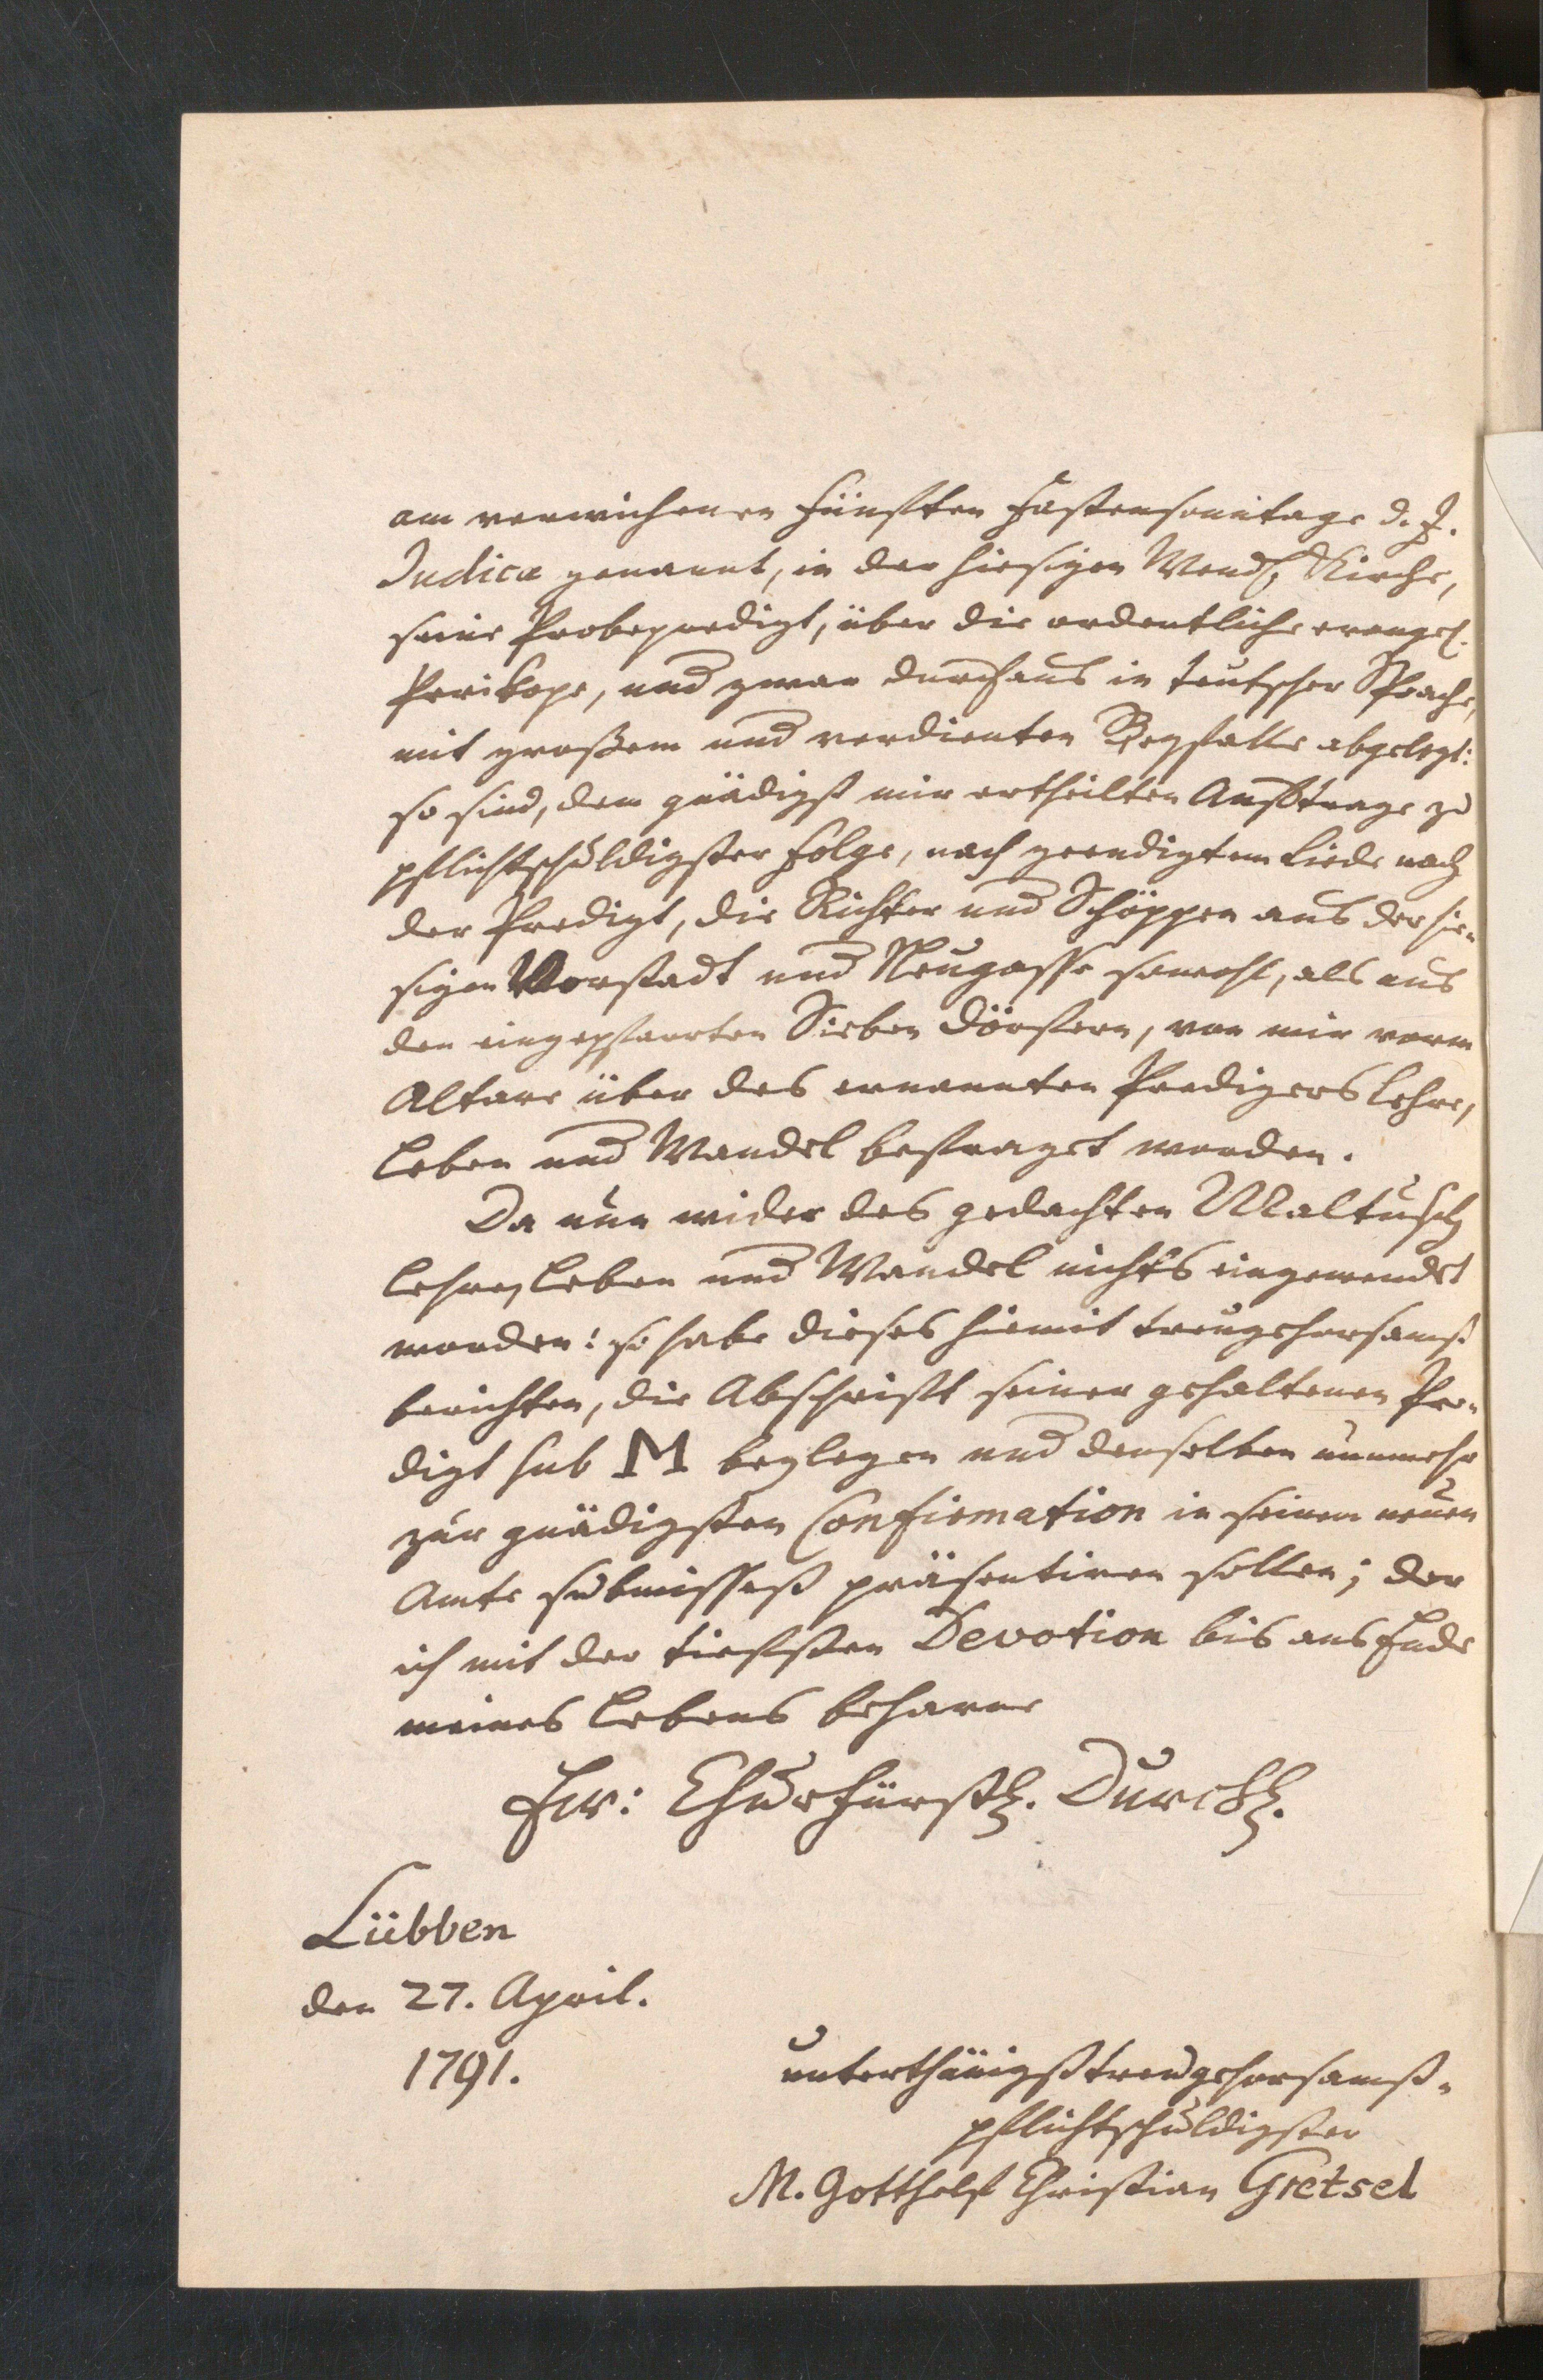 am verwichenen fünften Fastensonntage d. J.
Judica genannt, in der hiesigen Wend. Kirche,
seine Probepredigt, über die ordentliche evangel.
Perikope, und zwar durchaus in teutscher Sprache,
mit großem und verdienten Beyfalle abgelegt:
so sind, dem gnädigst mir ertheilten Auftrage zu
pflichtschuldigster Folge, nach geendigtem Liede nach
der Predigt, die Richter und Schöppen aus der hie-
sigen Vorstadt und Neugasse sowohl, als aus
den eingepfarrten Sieben Dörfern, von mir vorm
Altare über des ernannten Predigers Lehre,
Leben und Wandel befraget worden.
Da nun wider des gedachten Maltusch
Lehre, Leben und Wandel nichts eingewendet
worden: so habe dieses hiemit treugehorsamst
berichten, die Abschrift seiner gehaltenen Pre-
digt sub M beylegen und denselben nunmehr
zur gnädigsten Confirmation in seinem neuen
Amte submissest präsentiren sollen; der
ich mit der tiefsten Devotion bis ans Ende
meines Lebens beharre
Ew: Churfürstl. Durchl.
Lübben
den 27. April.
1791.
unterthänigst treugehorsamst-
pflichtschuldigster
M. Gotthelf Christian Gretsel